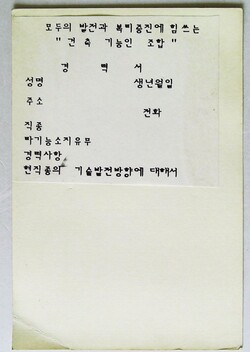 모두의 발전과 복지증진에 힘쓰는
" 건축 기능인 조합 "
경 력 서
성명 생년월일
주소
전화
직종
타기능소지유무
경력사항
현직종의 기술발전방향에 대해서